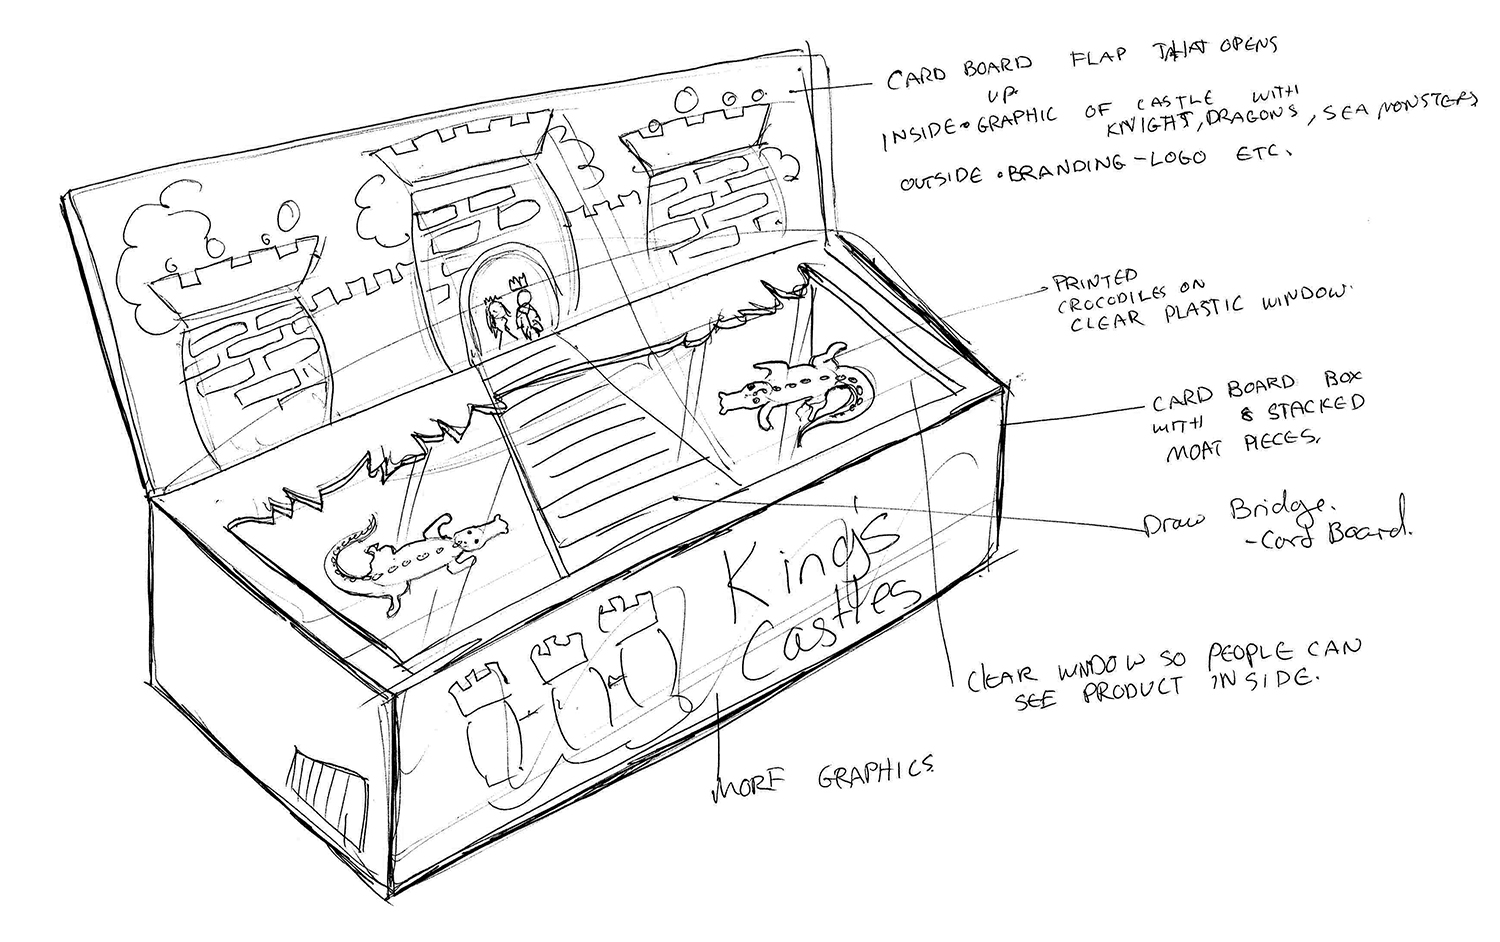 CARD BOARD FLAP THAT OPENS
UP.
INSIDE • GRAPHIC OF CASTLE WITH
KNIGHT, DRAGONS, SEA MONSTERS
OUTSIDE • BRANDING - LOGO ETC.
PRINTED
CROCODILES ON
CLEAR PLASTIC WINDOW.
CARD BOARD BOX
WITH 8 STACKED
MOAT PIECES.
Draw Bridge.
- Card Board.
King's
Castles
CLEAR WINDOW SO PEOPLE CAN
SEE PRODUCT INSIDE.
MORE GRAPHICS